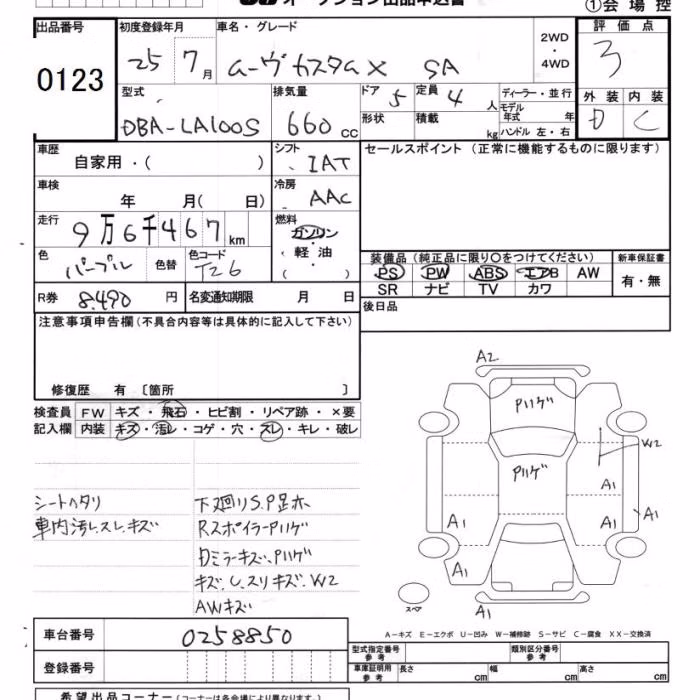 オークション出品申込書 ①会場控
出品番号 初度登録年月 車名・グレード 2WD・4WD 評価点
0123 25 7月 ムーヴカスタムX SA 3
型式 排気量 ドア 5 定員 4人 ディーラー・並行 外装 内装
DBA-LA100S 660cc 形状 積載 kg モデル年式 年 ハンドル 左・右 D C
車歴 自家用・( ) シフト IAT セールスポイント(正常に機能するものに限ります)
車検 年 月(日) 冷房 AAC
走行 9万6千467km 燃料 ガソリン・軽油・( )
色 パープル 色替 色コード T26 装備品(純正品に限り○をつけてください) 新車保証書
PS PW ABS エアB AW 有・無
R券 8,490円 名変通知期限 月 日 SR ナビ TV カワ
注意事項申告欄(不具合内容等は具体的に記入して下さい) 後日品
修復歴 有 〔箇所 〕
検査員記入欄 FW キズ・飛石・ヒビ割・リペア跡・×要
内装 キズ・汚レ・コゲ・穴・スレ・キレ・破レ
A2
Pハゲ
PハゲW2
A1 A1 A1
A1
A1
シートヘタリ 下廻りS.P足ホ
車内汚レスレ、キズ RスポイラーPハゲ
DミラーキズPハゲ
キズ、U、スリキズ、W2
AWキズ
スペア
車台番号 0258850
A-キズ E-エクボ U-凹み W-補修跡 S-サビ C-腐食 XX-交換済
登録番号 型式指定番号 参考 類別区分番号 参考
車庫証明用 参考 長さ cm 幅 cm 高さ cm
希望出品コーナー(コーナーは各会場により異なります。)